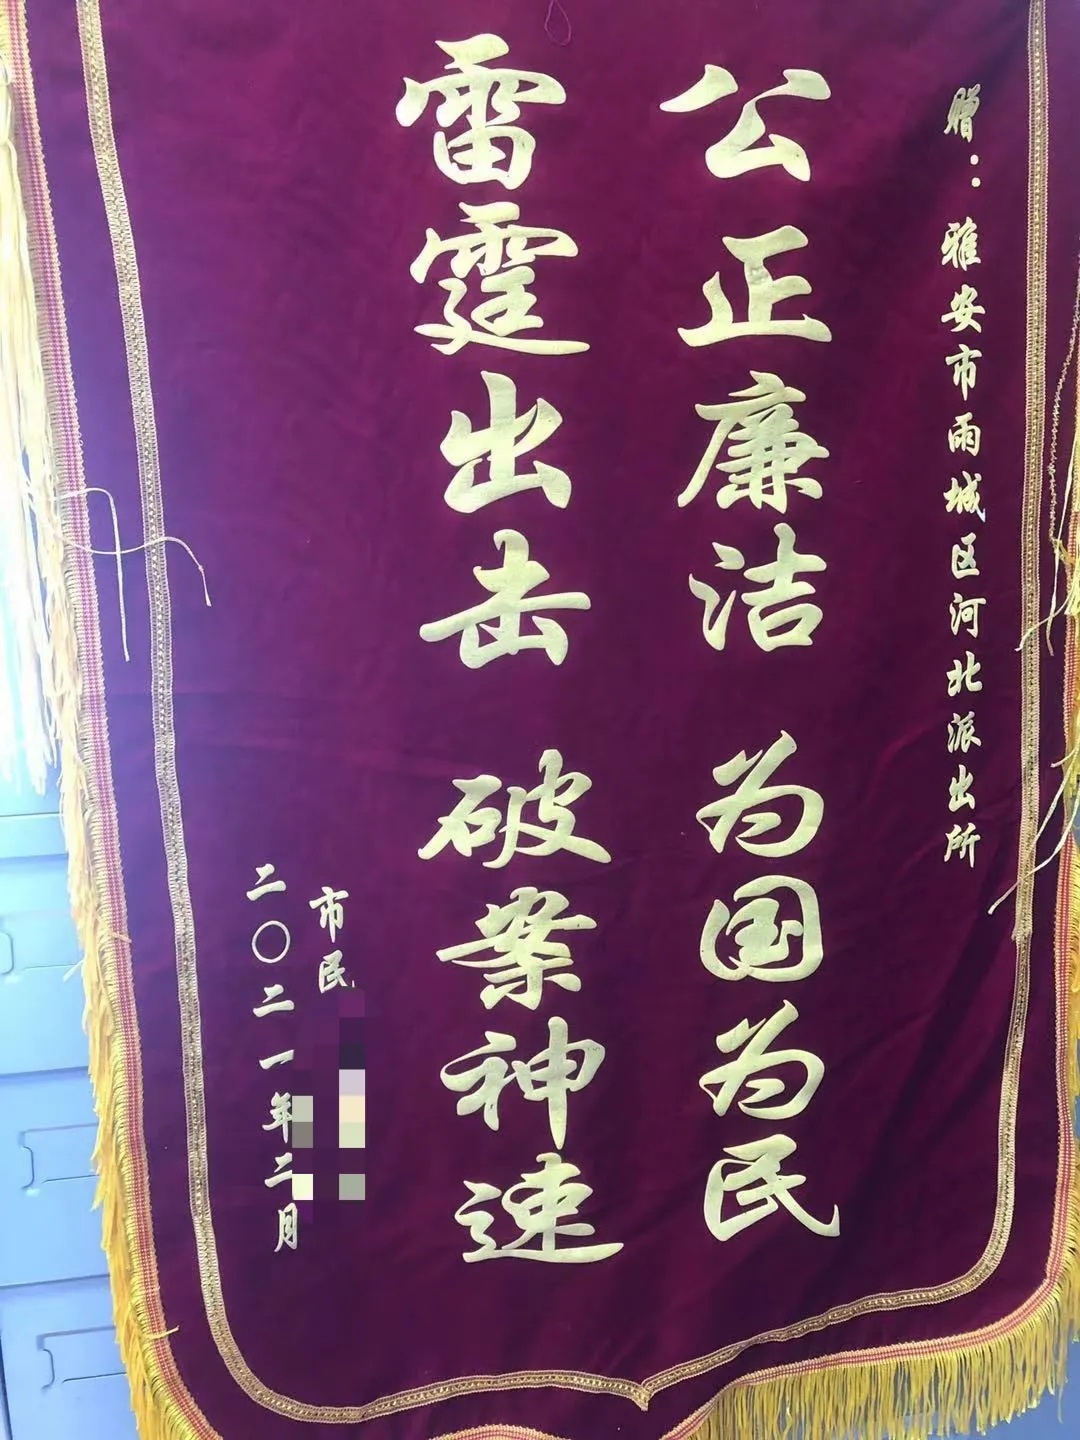 赠：雅安市雨城区河北派出所
公正廉洁 为国为民
雷霆出击 破案神速
市民
二〇二一年二月